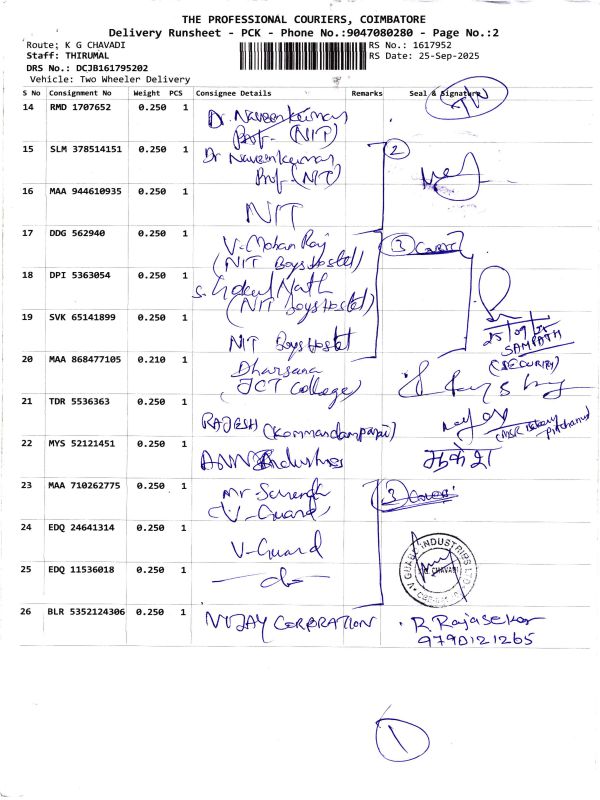 THE PROFESSIONAL COURIERS, COIMBATORE
Delivery Runsheet - PCK - Phone No.:9047080280 - Page No.:2
Route; K G CHAVADI RS No.: 1617952
Staff: THIRUMAL RS Date: 25-Sep-2025
DRS No.: DCJB161795202
Vehicle: Two Wheeler Delivery
S No Consignment No Weight PCS Consignee Details Remarks Seal & Signature
14 RMD 1707652 0.250 1 Dr. Naveenkumar
Prof- (NIT)
15 SLM 378514151 0.250 1 Dr Naveenkumar 2
Prof (NIT)
16 MAA 944610935 0.250 1 NIT
17 DDG 562940 0.250 1 V-Mohan Raj 3
(NIT Boys Hostel)
18 DPI 5363054 0.250 1 S. Gokul Nath
(NIT Boys Hostel)
19 SVK 65141899 0.250 1 NIT Boys Hostel 25/09/25
SAMPATH
(SECURITY)
20 MAA 868477105 0.210 1 Dharsana
JCT College)
21 TDR 5536363 0.250 1 RAJESH (Kommandampapai)
22 MYS 52121451 0.250 1 Industries
23 MAA 710262775 0.250 1 Mr Suresh 3
(V-Guard)
24 EDQ 24641314 0.250 1 V-Guard
V-GUARD INDUSTRIES
K.G. CHAVADI
25 EDQ 11536018 0.250 1 do
26 BLR 5352124306 0.250 1 VIJAY CORPORATION R. Rajasekar
9790121265
1